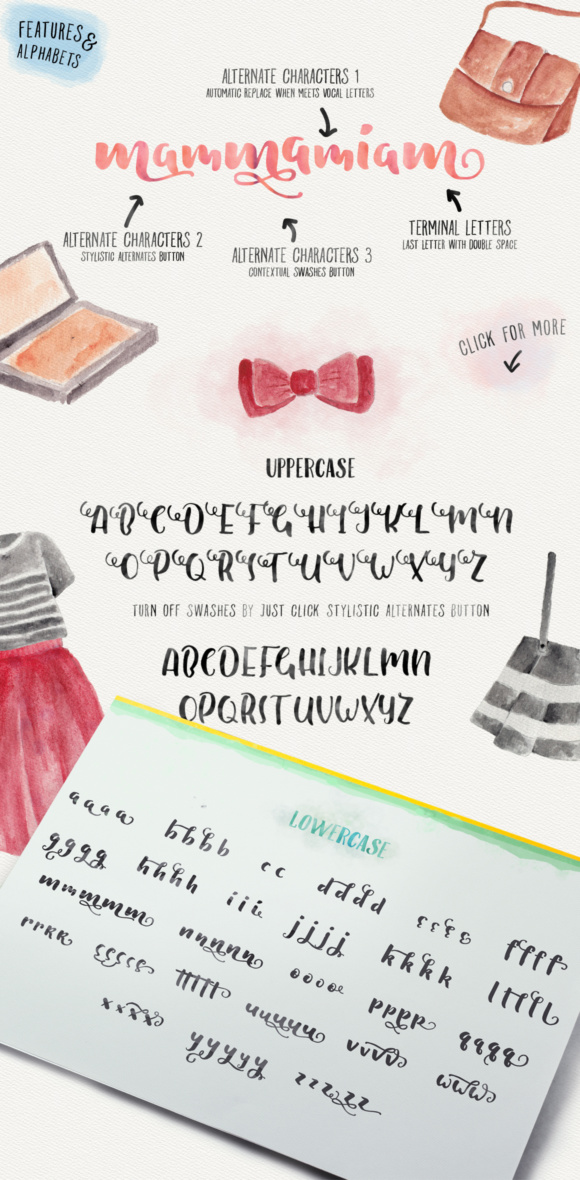 FEATURES &
ALPHABETS
ALTERNATE CHARACTERS 1
AUTOMATIC REPLACE WHEN MEETS VOCAL LETTERS
mammamiam
ALTERNATE CHARACTERS 2
STYLISTIC ALTERNATES BUTTON
ALTERNATE CHARACTERS 3
CONTEXTUAL SWASHES BUTTON
TERMINAL LETTERS
LAST LETTER WITH DOUBLE SPACE
CLICK FOR MORE
UPPERCASE
A B C D E F G H I J K L M N
O P Q R S T U V W X Y Z
TURN OFF SWASHES BY JUST CLICK STYLISTIC ALTERNATES BUTTON
ABCDEFGHIJKLMN
OPQRSTUVWXYZ
LOWERCASE
aaaa bbbb cc dddd εεεε ffff
gggg hhhh iii jjjj kkkk lllll
mmmmmm nnnnn oooo pppp qqqq
rrrr sssss ttttt uuuuu vvvv wwww
xxxx yyyyy zzzzz